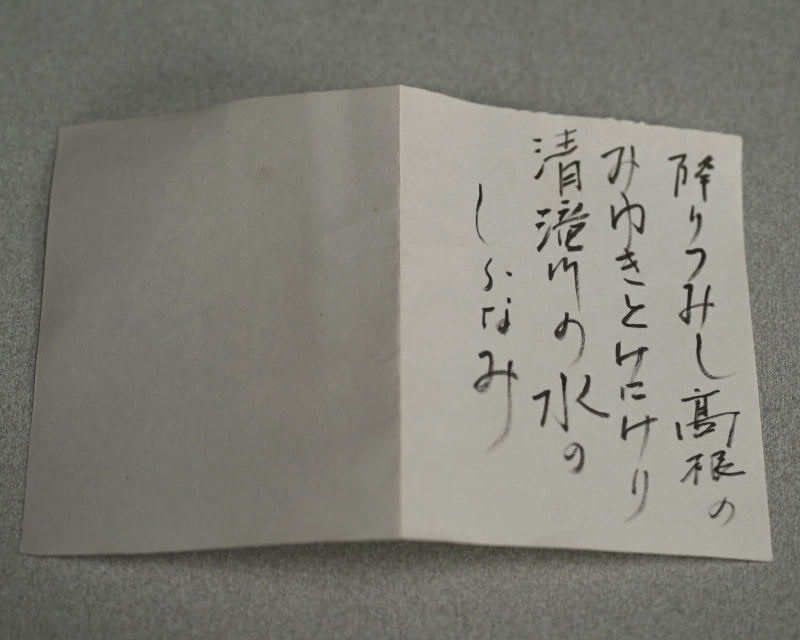 降りつみし高根の
みゆきとけにけり
清滝川の水の
しらなみ